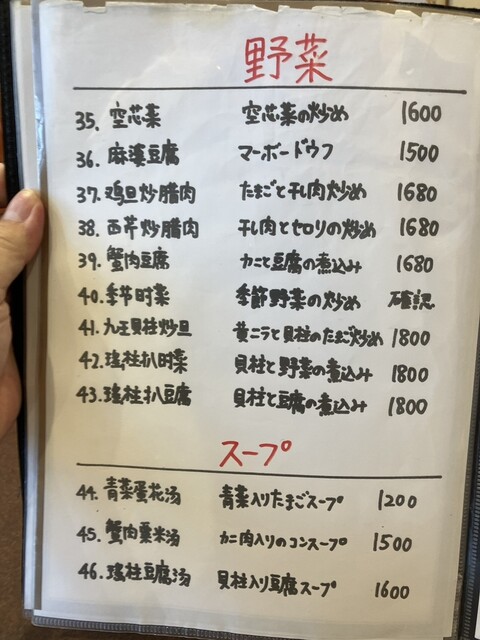 野菜
35. 空芯菜 空芯菜の炒め 1600
36. 麻婆豆腐 マーボードウフ 1500
37. 鸡旦炒腊肉 たまごと干し肉炒め 1680
38. 西芹炒腊肉 干し肉とセロリの炒め 1680
39. 蟹肉豆腐 カニと豆腐の煮込み 1680
40. 季节时菜 季節野菜の炒め 確認
41. 九王貝柱炒旦 黄ニラと貝柱のたまご炒め 1800
42. 瑤柱扒时菜 貝柱と野菜の煮込み 1800
43. 瑤柱扒豆腐 貝柱と豆腐の煮込み 1800
スープ
44. 青菜蛋花汤 青菜入りたまごスープ 1200
45. 蟹肉粟米汤 カニ肉入りのコンスープ 1500
46. 瑤柱豆腐汤 貝柱入り豆腐スープ 1600